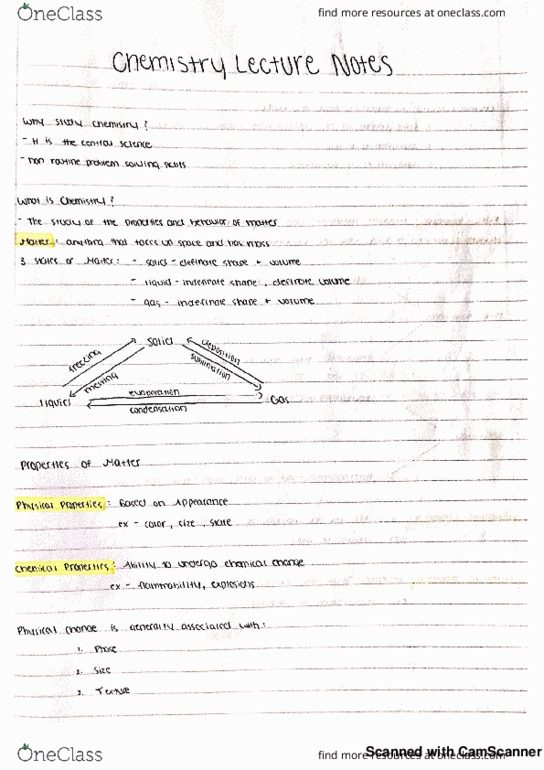 OneClass
find more resources at oneclass.com
Chemistry Lecture Notes
Why study chemistry?
- It is the central science
- non routine problem solving skills
What is Chemistry?
- The study of the properties and behavior of matter
Matter: anything that takes up space and has mass
3 states of Matter: - solid - definate shape + volume
- liquid - indefinate shape, definate volume
- gas - indefinate shape + volume
solid
freezing
melting
deposition
sublimation
liquid
evaporation
condensation
Gas
Properties of Matter
Physical Properties: Based on Appearance
ex - color, size, state
Chemical Properties: Ability to undergo chemical change
ex - flammability, explosions
Physical change is generally associated with:
1. Phase
2. Size
3. Texture
OneClass
find more resources at oneclass.com
Scanned with CamScanner